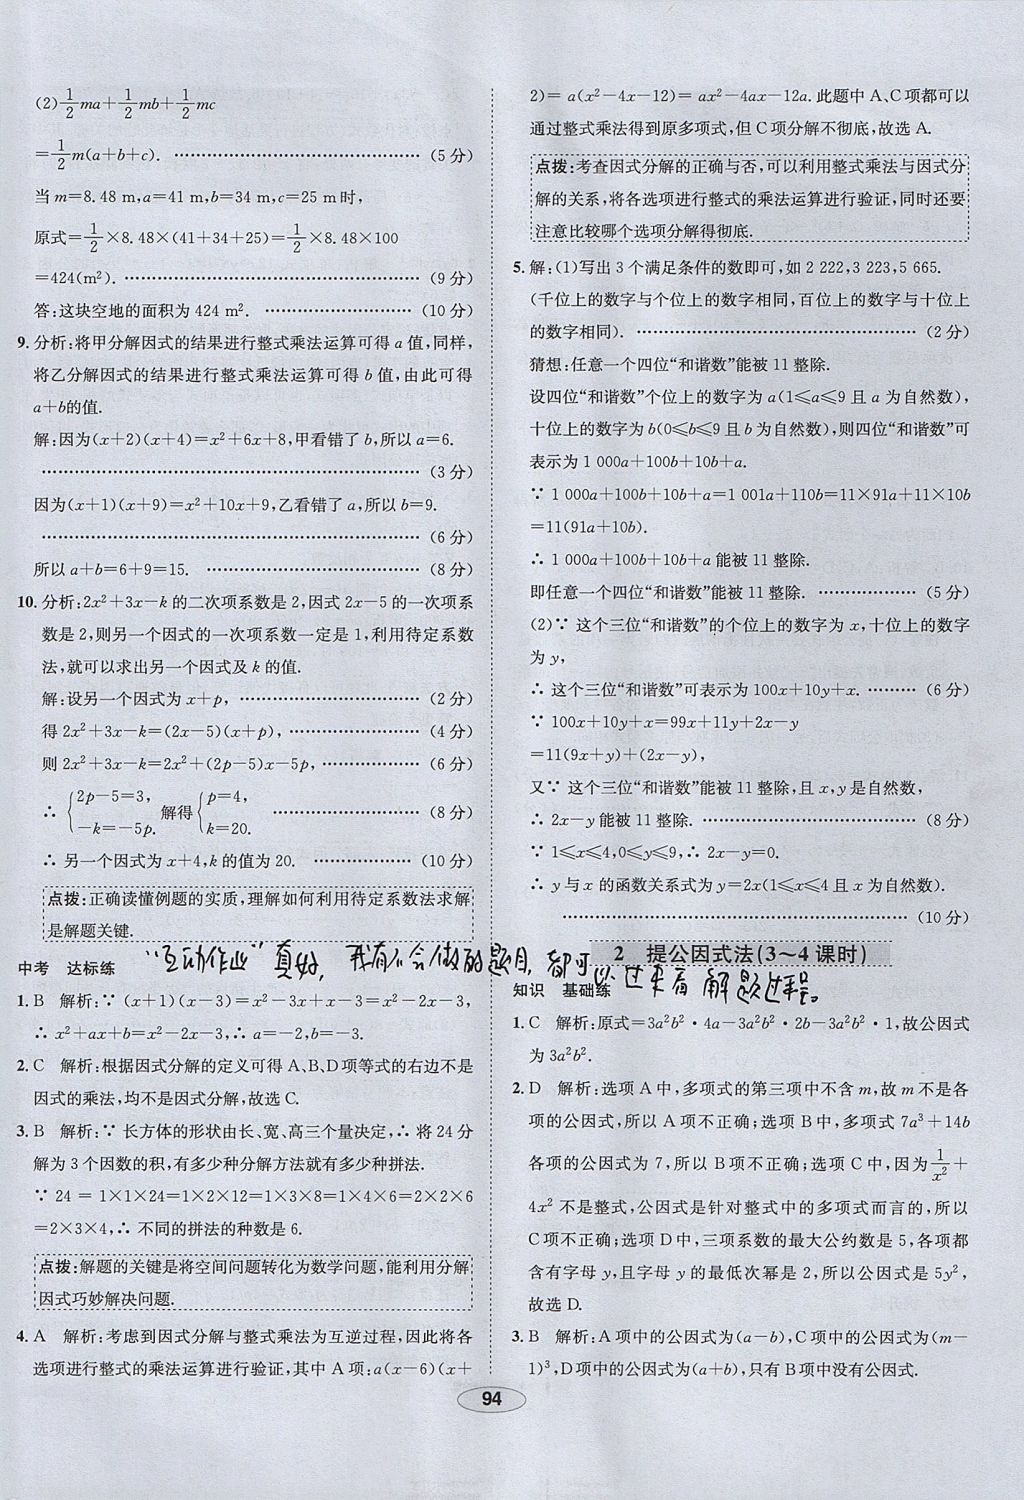 (2)1/2ma+1/2mb+1/2mc
=1/2m(a+b+c). ……………………………… (5 分)
当 m=8.48 m,a=41 m,b=34 m,c=25 m时,
原式=1/2×8.48×(41+34+25)=1/2×8.48×100
=424(m²). ……………………………… (9 分)
答:这块空地的面积为 424 m². …………………… (10 分)
9. 分析:将甲分解因式的结果进行整式乘法运算可得 a 值,同样,
将乙分解因式的结果进行整式乘法运算可得 b 值,由此可得
a+b的值.
解:因为(x+2)(x+4)=x²+6x+8,甲看错了 b,所以 a=6.
……………………………………………… (3 分)
因为(x+1)(x+9)=x²+10x+9,乙看错了 a,所以 b=9.
……………………………………………… (6 分)
所以 a+b=6+9=15. ……………………………… (8 分)
10. 分析:2x²+3x-k 的二次项系数是 2,因式 2x-5 的一次项系
数是 2,则另一个因式的一次项系数一定是 1,利用待定系数
法,就可以求出另一个因式及 k 的值.
解:设另一个因式为 x+p, ……………………… (2 分)
得 2x²+3x-k=(2x-5)(x+p), ……………… (4 分)
则 2x²+3x-k=2x²+(2p-5)x-5p, ………… (6 分)
∴ {2p-5=3, -k=-5p. 解得 {p=4, k=20. …………………… (8 分)
∴ 另一个因式为 x+4,k 的值为 20. …………… (10 分)
点拨:正确读懂例题的实质,理解如何利用待定系数法求解
是解题关键.
中考 达标练
1. B 解析:∵ (x+1)(x-3)=x²-3x+x-3=x²-2x-3,
∴ x²+ax+b=x²-2x-3,∴ a=-2,b=-3.
2. C 解析:根据因式分解的定义可得 A、B、D项等式的右边不是
因式的乘法,均不是因式分解,故选 C.
3. B 解析:∵ 长方体的形状由长、宽、高三个量决定,∴ 将 24 分
解为 3 个因数的积,有多少种分解方法就有多少种拼法.
∵ 24 = 1×1×24=1×2×12=1×3×8=1×4×6=2×2×6
=2×3×4,∴ 不同的拼法的种数是 6.
点拨:解题的关键是将空间问题转化为数学问题,能利用分解
因式巧妙解决问题.
4. A 解析:考虑到因式分解与整式乘法为互逆过程,因此将各
选项进行整式的乘法运算进行验证,其中 A 项:a(x-6)(x+
2)= a(x²-4x-12)= ax²-4ax-12a. 此题中 A、C 项都可以
通过整式乘法得到原多项式,但 C 项分解不彻底,故选 A.
点拨:考查因式分解的正确与否,可以利用整式乘法与因式分
解的关系,将各选项进行整式的乘法运算进行验证,同时还要
注意比较哪个选项分解得彻底.
5. 解:(1)写出 3 个满足条件的数即可,如 2 222,3 223,5 665.
(千位上的数字与个位上的数字相同,百位上的数字与十位上
的数字相同). ……………………………… (2 分)
猜想:任意一个四位“和谐数”能被 11 整除.
设四位“和谐数”个位上的数字为 a(1≤a≤9 且 a 为自然数),
十位上的数字为 b(0≤b≤9 且 b 为自然数),则四位“和谐数”可
表示为 1 000a+100b+10b+a.
∵ 1 000a+100b+10b+a=1 001a+110b=11×91a+11×10b
=11(91a+10b).
∴ 1 000a+100b+10b+a 能被 11 整除.
即任意一个四位“和谐数”能被 11 整除. ………… (5 分)
(2)∵ 这个三位“和谐数”的个位上的数字为 x,十位上的数字
为 y,
∴ 这个三位“和谐数”可表示为 100x+10y+x. ……… (6 分)
∵ 100x+10y+x=99x+11y+2x-y
=11(9x+y)+(2x-y),
又∵ 这个三位“和谐数”能被 11 整除,且 x,y 是自然数,
∴ 2x-y能被 11 整除. ……………………… (8 分)
∵ 1≤x≤4,0≤y≤9,∴ 2x-y=0.
∴ y 与 x 的函数关系式为 y=2x(1≤x≤4 且 x 为自然数).
……………………………………………… (10 分)
“互动作业”真好,我有不会做的题目,都可以过来看解题过程。
2 提公因式法(3～4 课时)
知识 基础练
1. C 解析:原式=3a²b²·4a-3a²b²·2b-3a²b²·1,故公因式
为 3a²b².
2. D 解析:选项 A 中,多项式的第三项中不含 m,故 m 不是各
项的公因式,所以 A 项不正确;选项 B 中,多项式 7a³+14b
各项的公因式为 7,所以 B 项不正确;选项 C 中,因为1/x²+
4x² 不是整式,公因式是针对整式中的多项式而言的,所以
C 项不正确;选项 D 中,三项系数的最大公约数是 5,各项都
含有字母 y,且字母 y 的最低次幂是 2,所以公因式是 5y²,
故选 D.
3. B 解析:A 项中的公因式为(a-b),C 项中的公因式为(m-
1)³,D 项中的公因式为(a+b),只有 B 项中没有公因式.
94